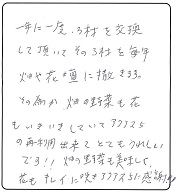 一年に一度、3村を交換
して頂いてその3村を毎年
畑や花壇に撒きます。
その為か畑の野菜も花
もいきいきしていて
の再利用出来てとてもうれしい
です!! 畑の野菜も美味しく、
花もキレイに咲き に感謝